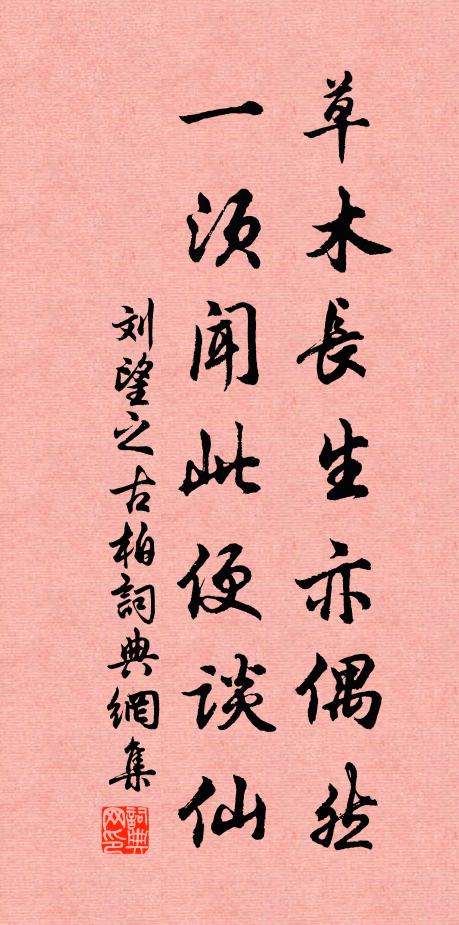 草木長生亦偶然
一須聞此便談仙
刘望之古柏詞典網集
詞典网印